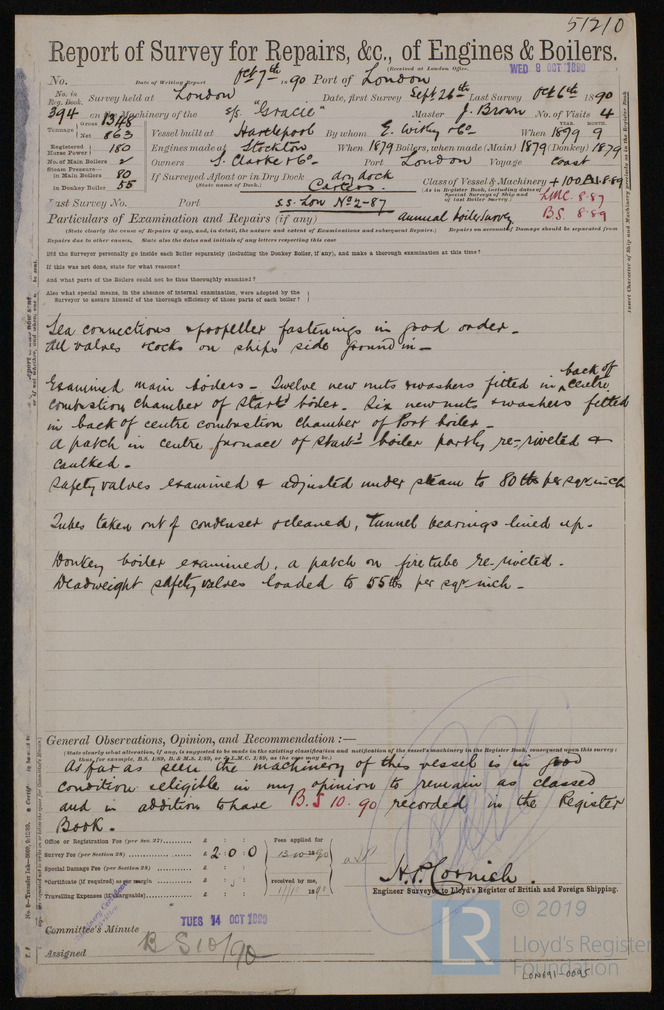 51210
Report of Survey for Repairs, &c., of Engines & Boilers.
(Received at London Office,
WED 8 OCT 1890
No. Date of Writing Report Oct 7th 1890 Port of London
No. in Reg. Book. Survey held at London Date, first Survey Sept 26th Last Survey Oct 6th 1890
394 on the Machinery of the s/s. "Gracie" Master J. Brown No. of Visits 4
Tonnage Gross 1348 Net 863 Vessel built at Hartlepool By whom E. Withy & Co When 1879 9 YEAR. MONTH.
Registered Horse Power 180 Engines made at Stockton When 1879 Boilers, when made (Main) 1879 (Donkey) 1879
No. of Main Boilers 2 Owners S. Clarke & Co Port London Voyage Coast
Steam Pressure— in Main Boilers 80 If Surveyed Afloat or in Dry Dock dry dock Class of Vessel & Machinery +100A1 8.89
in Donkey Boiler 55 (State name of Dock.) Carters. (As in Register Book, including dates of Special Surveys of Ship and of last Boiler Survey.) LMC. 8.87
Last Survey No. Port S.S. Lon No 2-87 B.S. 8.89
Particulars of Examination and Repairs (if any) annual boiler survey
(State clearly the cause of Repairs if any, and, in detail, the nature and extent of Examinations and subsequent Repairs.) Repairs on account of Damage should be separated from
Repairs due to other causes, State also the dates and initials of any letters respecting this case
Did the Surveyor personally go inside each Boiler separately (including the Donkey Boiler, if any), and make a thorough examination at this time?
If this was not done, state for what reasons?
And what parts of the Boilers could not be thus thoroughly examined?
Also what special means, in the absence of internal examination, were adopted by the
Surveyor to assure himself of the thorough efficiency of those parts of each boiler?
Sea connections & propeller fastenings in good order.
All valves & cocks on ships side ground in—
Examined main boilers — Twelve new nuts & washers fitted in back of centre
combustion chamber of starbd boiler. Six new nuts & washers fitted
in back of centre combustion chamber of Port boiler.
A patch in centre furnace of starbd boiler partly re-riveted &
caulked.
Safety valves examined & adjusted under steam to 80 lbs per sqr inch
Tubes taken out of condenser & cleaned, tunnel bearings lined up.
Donkey boiler examined, a patch on fire tube re-riveted.
Deadweight safety valves loaded to 55 lbs per sqr inch.
General Observations, Opinion, and Recommendation:—
(State clearly what alteration, if any, is suggested to be made in the existing classification and notification of the vessel's machinery in the Register Book, consequent upon this survey:
thus, for example, B.S. 1/89, B. & M.S. 1/89, or L.M.C. 1/89, as the case may be.)
As far as seen the machinery of this vessel is in good
condition & eligible in my opinion to remain as classed
and in addition to have B.S 10.90 recorded in the Register
Book.
Office or Registration Fee (per Sec. 27) £ : : Fees applied for
Survey Fee (per Section 28) £ 2 : 0 : 0 13-10-1890
Special Damage Fee (per Section 28) £ : :
*Certificate (if required) as per margin £ : : received by me,
Travelling Expenses (if chargeable) £ : : 11/10 1890
H. P. Cornish.
Engineer Surveyor to Lloyd's Register of British and Foreign Shipping.
TUES 14 OCT 1890
Committee's Minute
B S 10/90
Assigned
LR © 2019
Lloyd's Register
Foundation
LON691-0095
Insert Character of Ship and Machinery precisely as in the Register Book